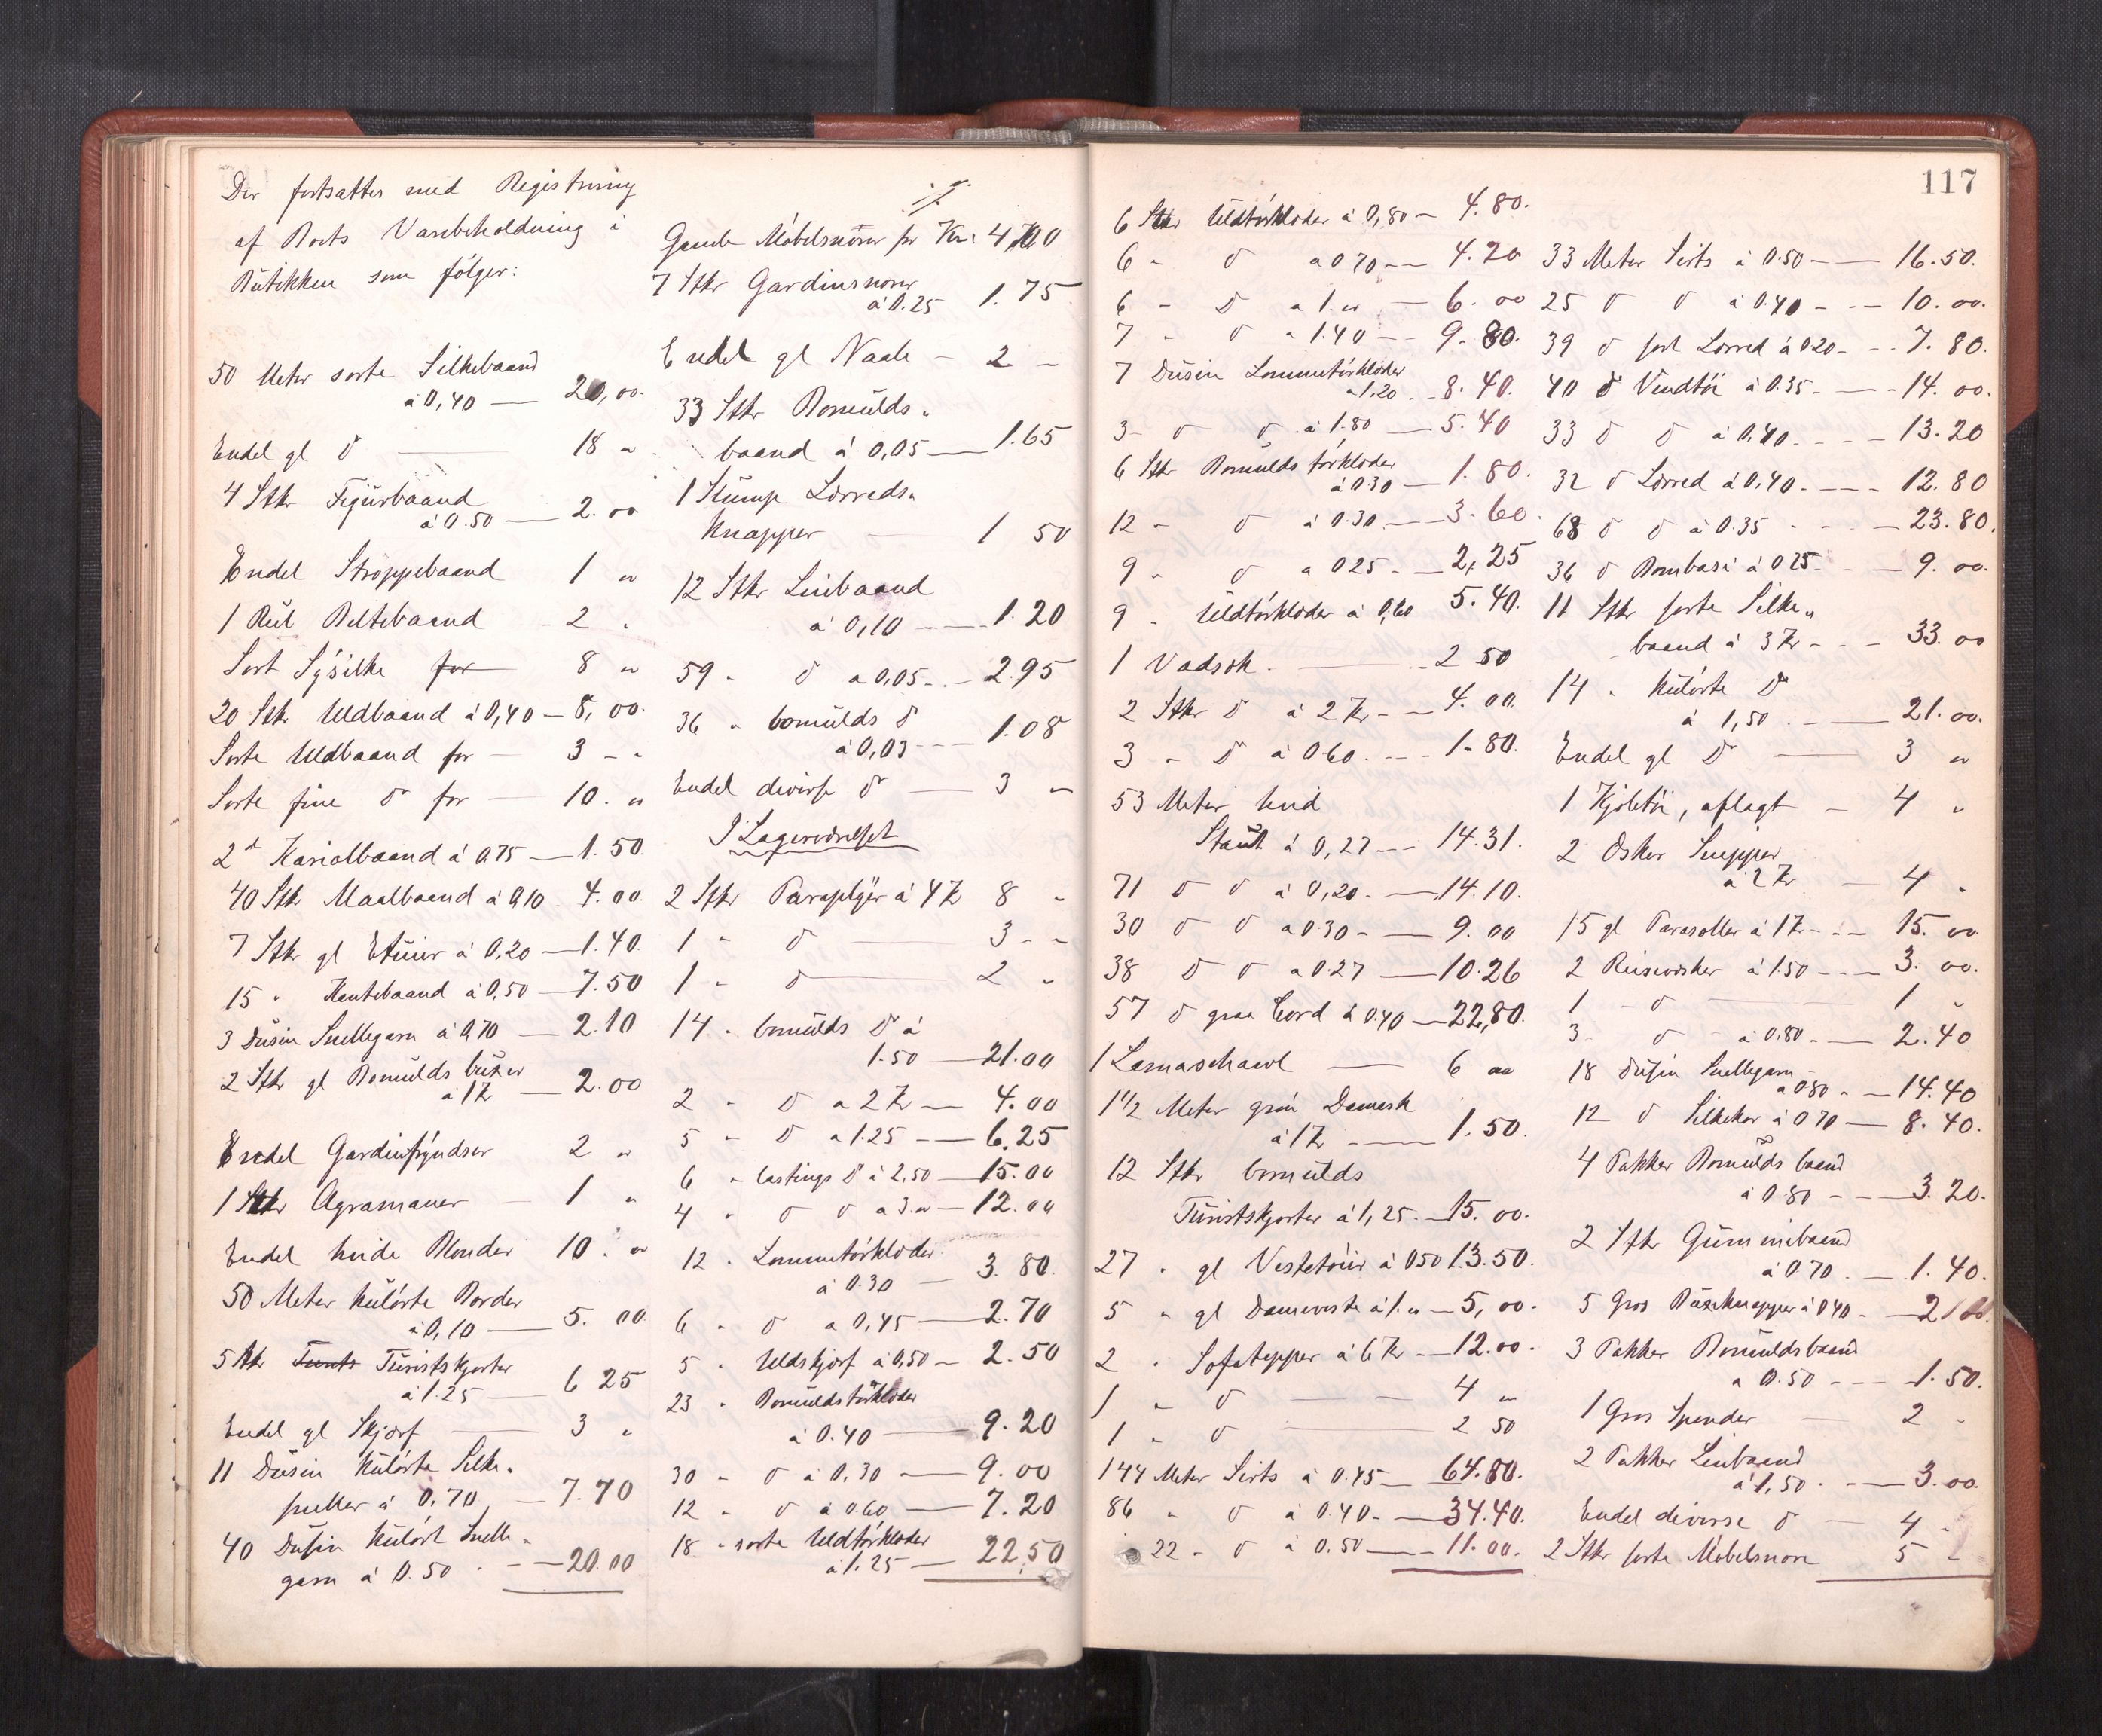 Der fortsattes med Registrering
af Boets Varebeholdning i
Butikken som følger:
50 Meter sorte Silkebaand
à 0,40 — 20,00.
Endel gl d° — 18 "
4 Stkr Figurbaand
à 0.50 — 2.00
Endel Stroppebaand 1 "
1 Rul Beltebaand 2 "
Sort Sysilke for 8 "
20 Stkr Uldbaand à 0,40 — 8,00.
Sorte Uldbaand for — 3 - "
Sorte fine d° for — 10. "
2 d° Kariolbaand à 0.75 — 1.50
40 Stk Maalbaand à 0,10 4.00
7 Stkr gl Etuier à 0,20 — 1.40.
15 " Kantebaand à 0,50 — 7.50
3 Dusin Snellegarn à 0,70 — 2.10
2 Stkr gl Bomulds buxer
à 1 Kr — 2.00
Endel Gardinfryndser 2 "
1 Stkr Agramaner — 1 "
Endel hvide Blonder 10. "
50 Meter kulørte Border
à 0,10 — 5.00.
5 Stkr Turistskjorter
à 1.25 — 6 25
Endel gl Skjørf — 3 "
11 Dusin kulørte Silke-
sneller à 0,70 — 7.70
40 Dusin kulørt Snelle-
garn à 0.50 - - — 20.00
Gamle Møbelsnorer for Kr. 4,00
7 Stkr Gardinsnorer
à 0.25 1.75
Endel gl Naale — 2 —
33 Stkr Bomulds-
baand à 0,05 — 1.65
1 Stump Lærreds-
Knapper — 1 50
12 Stkr Linbaand
à 0,10 — 1.20
59 " d° a 0,05 - - 2.95
36 " bomulds d°
à 0,03 - - - 1.08
Endel diverse d° — 3 "
I Lagerværelset
2 Stkr Paraplyer à 4 Kr 8 "
1 " d° — 3 - "
1 " d° — 2 "
14 " bomulds d° à
1.50 — 21.00
2 " d° a 2 Kr — 4.00
5 " d° a 1.25 — 6.25
6 " lastings d° à 2,50 — 15.00
4 " d° d° a 3." — 12.00
12 " Lommetørklæder
à 0.30 — 3.80
6 " d° a 0,45 — 2.70
5 " Uldskjørf à 0,50 — 2.50
23 " Bomuldstørklæder
à 0.40 — 9.20
30 " d° à 0.30 — 9.00
12 " d° à 0.60 — 7.20
18 " sorte Uldtørklæder
à 1.25 — 22,50
117
6 Stkr Uldtørklæder à 0,80 — 4.80.
6 " d° a 0.70 — 4.20
6 " d° a 1." — 6.00
7 " d° a 1.40 — 9.80.
7 Dusin Lommetørklæder
a 1,20 - - 8.40.
3 " d° d° à 1.80 — 5.40
6 Stkr Bomulds tørklæder
à 0.30 — 1.80.
12 " d° à 0.30 — 3.60.
9 " d° a 0.25 — 2,25
9 " Uldtørklæder à 0,60 5.40.
1 Vadsæk — 2 50
2 Stkr d° à 2 Kr — 4.00.
3 " d° à 0.60 - - - 1.80.
53 Meter hvid
Stout à 0,27 - - 14.31.
71 d° d° à 0,20 — 14.10.
30 d° d° a 0.30 — 9.00
38 d° d° a 0.27 — 10.26
57 d° graa Cord à 0.40 — 22,80.
1 Lamaschawl — 6 "
1 1/2 Meter grøn Damask
à 1 Kr — 1.50.
12 Stkr bomulds
Turistskjorter à 1,25 — 15.00.
27 " gl Vestetøier à 0.50 13.50.
5 " gl Dameveste à 1." — 5,00.
2 " Sofatepper à 6 Kr — 12.00.
1 " d° — 4 "
1 " d° — 2 50
144 Meter Sirts à 0.45 — 64.80.
86 " d° à 0.40 — 34.40.
22 " d° à 0.50 — 11.00.
33 Meter Sirts à 0.50 — 16.50.
25 d° d° à 0.40 - - — 10.00.
39 d° sort Lærred à 0.20 - - 7.80.
40 d° Vendtøi à 0.35 — 14.00.
33 d° d° à 0,40 - - - 13.20
32 d° Lærred à 0,40 - - - 12.80
68 d° d° à 0.35 - - — 23.80.
36 d° Bombasi à 0.25 - - — 9.00.
11 Stkr sorte Silke-
baand à 3 Kr - - - 33.00
14 " kulørte d°
à 1,50 — 21.00.
Endel gl d° — 3 "
1 Kjoletøi, aflagt — 4 "
2 Æsker Snipper
à 2 Kr — 4 "
15 gl Parasoller à 1 Kr - - — 15.00
2 Reisevæsker à 1.50 - - — 3.00.
1 - d° — 1 "
3 d° à 0,80 — 2.40
18 Dusin Snellegarn
a 0.80 - — 14.40
12 d° Silkekar à 0.70 — 8.40.
4 Pakker Bomulds baand
à 0.80 - - — 3.20.
2 Stkr Gummibaand
à 0.70 — 1.40.
5 Gros Buxeknapper à 0.40 - — 2.00.
3 Pakker Bomuldsbaand
a 0.50 - - - 1.50.
1 Gros Spender — 2 -
2 Pakker Linbaand
à 1,50 — 3.00.
Endel diverse d° — 4 -
2 Stkr sorte Møbelsnore 5 -